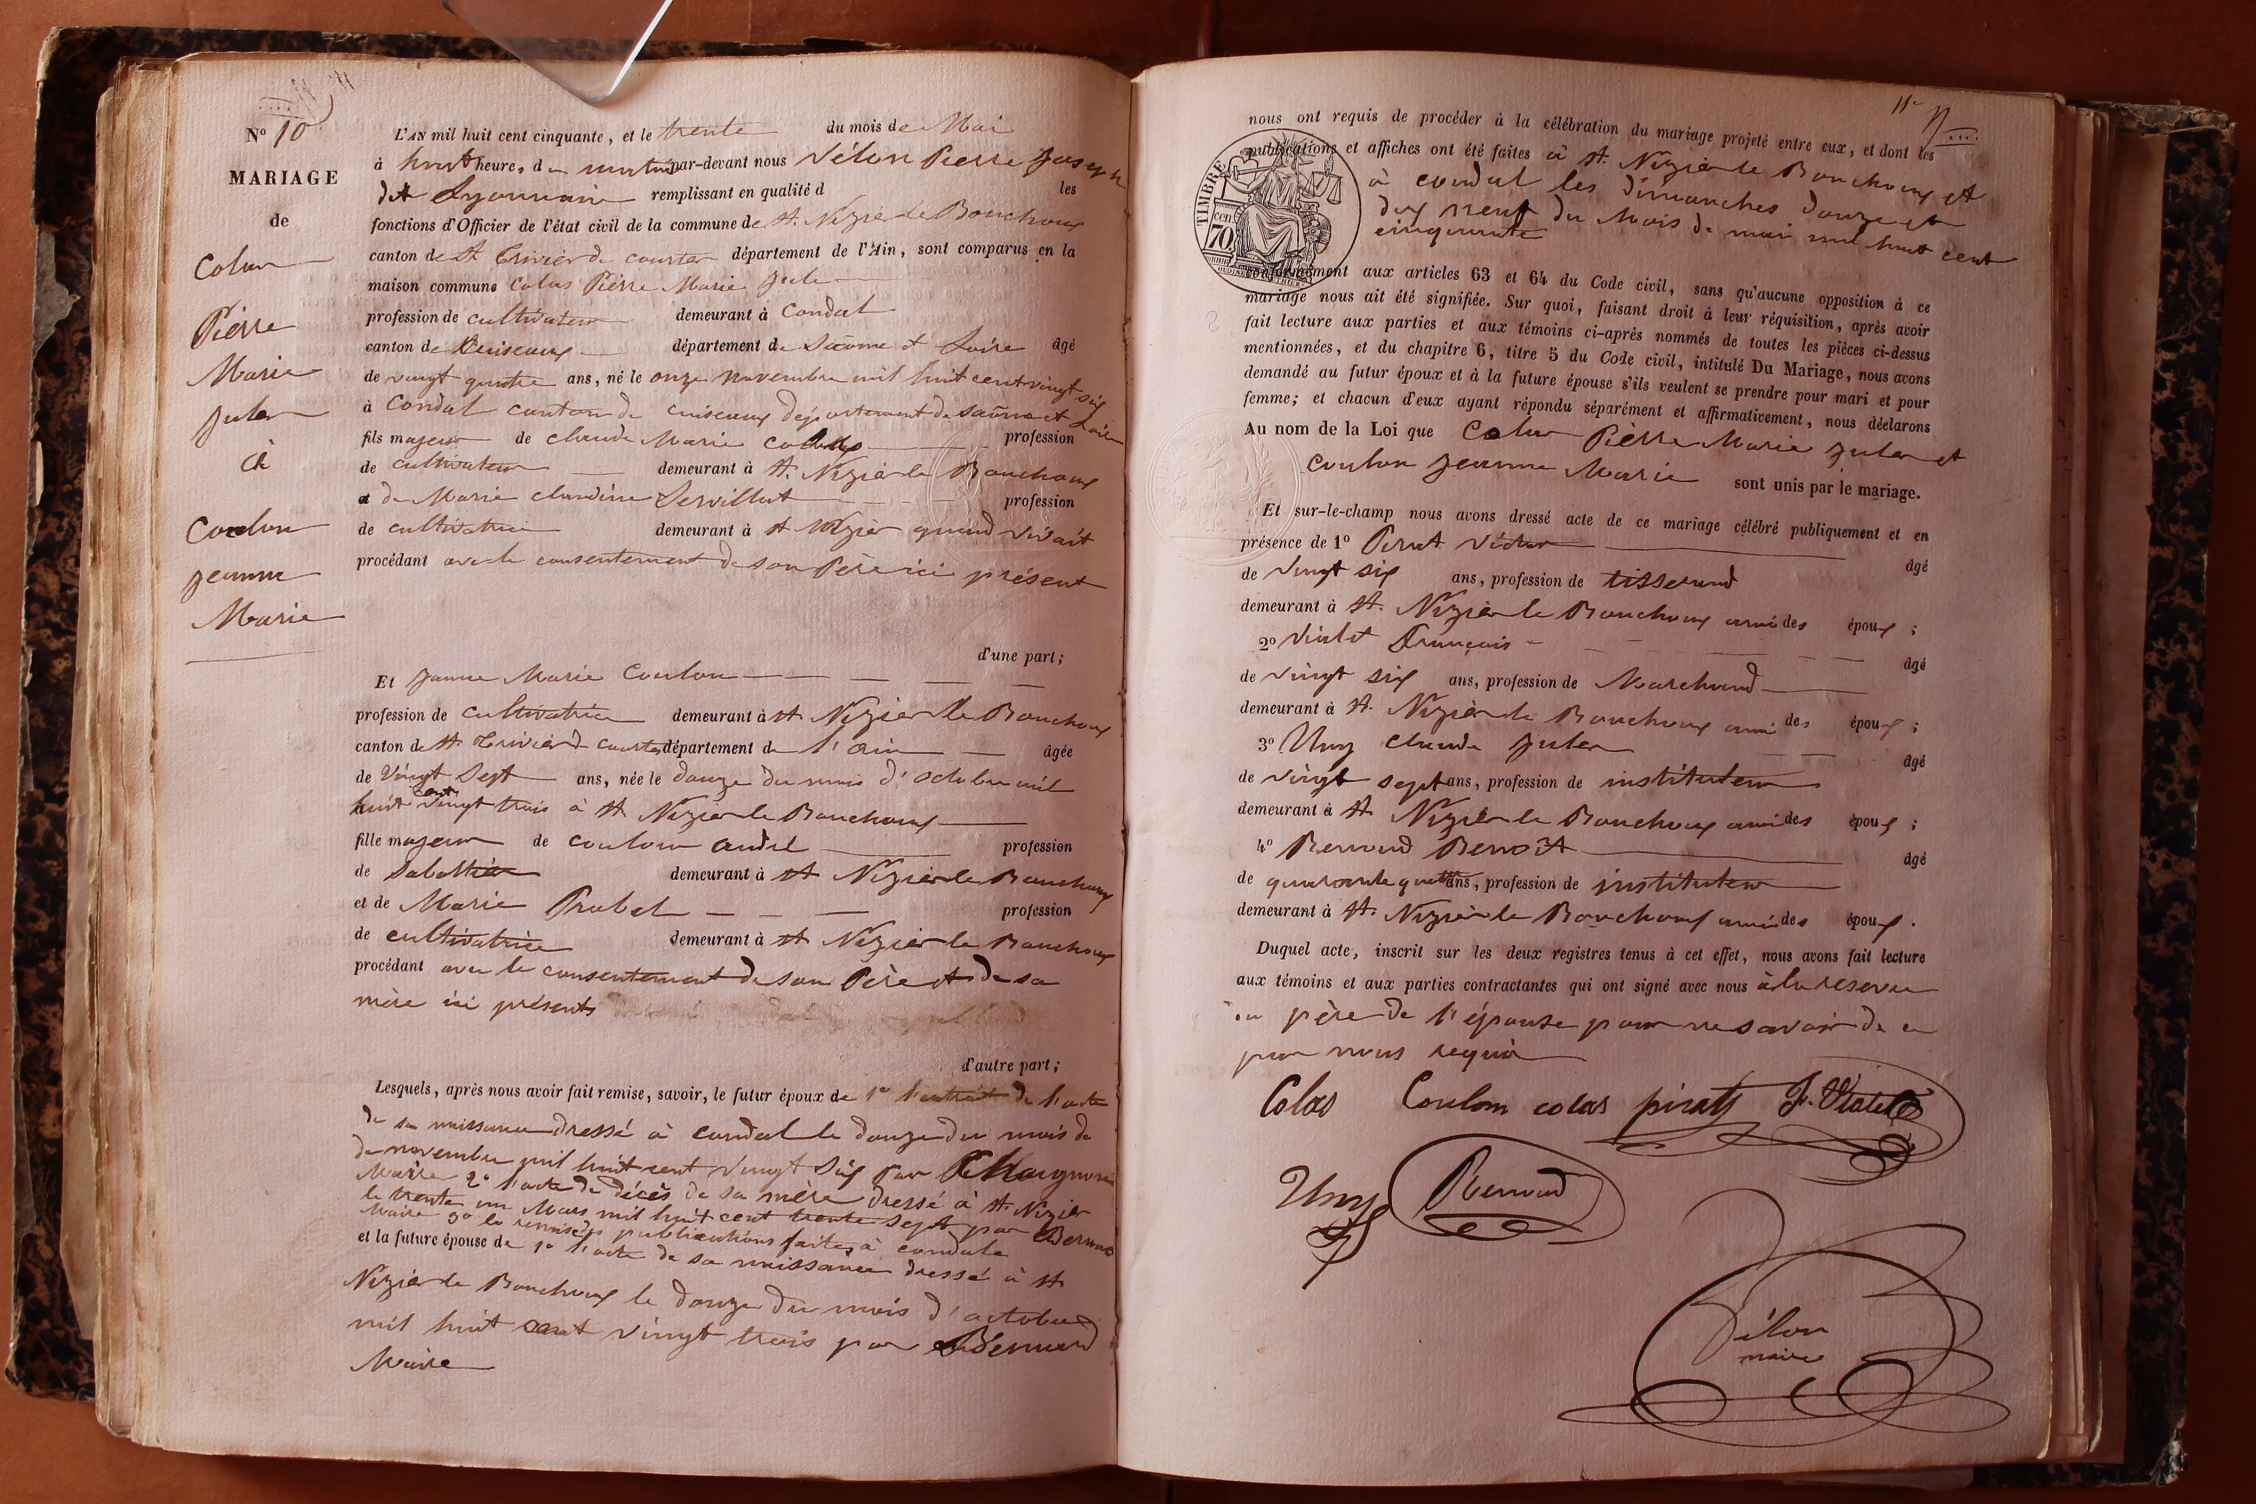 N° 10
MARIAGE
de
Colas
Pierre
Marie
Jules
à
Coulon
Jeanne
Marie
L'AN mil huit cent cinquante, et le trente du mois de Mai
à huit heures du matin par-devant nous Vélon Pierre Joseph
dit Lyonnais remplissant en qualité d les
fonctions d'Officier de l'état civil de la commune de St. Nizier le Bouchoux
canton de St Trivier de courtes département de l'Ain, sont comparus en la
maison commune Colas Pierre Marie Jules
profession de cultivateur demeurant à Condal
canton de Cuiseaux département de Saône et Loire âgé
de vingt quatre ans, né le onze novembre mil huit cent vingt six
à Condal canton de cuiseaux département de saône et Loire
fils majeur de claude Marie colas profession
de cultivateur demeurant à St. Nizier le Bouchoux
et de Marie claudine Servillat profession
de cultivatrice demeurant à St Nizier quand vivait
procédant avec le consentement de son Père ici présent
d'une part;
Et Jeanne Marie Coulon
profession de cultivatrice demeurant à St Nizier le Bouchoux
canton de St Trivier de courtes département de l'ain âgée
de vingt sept ans, née le douze du mois d'octobre mil
huit cent vingt trois à St Nizier le Bouchoux
fille majeur de coulon andré profession
de Sabottier demeurant à St Nizier le Bouchoux
et de Marie Prabel profession
de cultivatrice demeurant à St Nizier le Bouchoux
procédant avec le consentement de son Père et de sa
mère ici présents
d'autre part;
Lesquels, après nous avoir fait remise, savoir, le futur époux de 1° l'extrait de l'acte
de sa naissance dressé à condal le douze du mois de
de novembre mil huit cent vingt six par
Maire 2° l'acte de décès de sa mère dressé à St Nizier
le trente un Mars mil huit cent trente sept par Bernard
Maire 3° la remise publications faites à condal
et la future épouse de 1° l'acte de sa naissance dressé à St
Nizier le Bouchoux le douze du mois d'octobre
mil huit cent vingt trois par Bernard
Maire
11
nous ont requis de procéder à la célébration du mariage projeté entre eux, et dont les
publications et affiches ont été faites à St. Nizier le Bouchoux et
à condal les dimanches douze et
dix neuf du Mois de mai mil huit cent
cinquante
TIMBRE
cen
70
conformément aux articles 63 et 64 du Code civil, sans qu'aucune opposition à ce
mariage nous ait été signifiée. Sur quoi, faisant droit à leur réquisition, après avoir
fait lecture aux parties et aux témoins ci-après nommés de toutes les pièces ci-dessus
mentionnées, et du chapitre 6, titre 5 du Code civil, intitulé Du Mariage, nous avons
demandé au futur époux et à la future épouse s'ils veulent se prendre pour mari et pour
femme; et chacun d'eux ayant répondu séparément et affirmativement, nous déclarons
Au nom de la Loi que Colas Pierre Marie Jules et
coulon Jeanne Marie sont unis par le mariage.
Et sur-le-champ nous avons dressé acte de ce mariage célébré publiquement et en
présence de 1° Pirat Victor âgé
de vingt six ans, profession de tisserand
demeurant à St. Nizier le Bouchoux ami des époux ;
2° Vialet François âgé
de vingt six ans, profession de Marchand
demeurant à St. Nizier le Bouchoux ami des époux ;
3° Uny claude Jules âgé
de vingt sept ans, profession de instituteur
demeurant à St Nizier le Bouchoux ami des époux ;
4° Renoud Benoît âgé
de quarante quatre ans, profession de instituteur
demeurant à St. Nizier le Bouchoux ami des époux .
Duquel acte, inscrit sur les deux registres tenus à cet effet, nous avons fait lecture
aux témoins et aux parties contractantes qui ont signé avec nous à la reserve
du père de l'épouse pour ne savoir de ce
par nous requis
Colas Coulon colas pirat F. Vialet
Uny Renoud
Vélon
maire